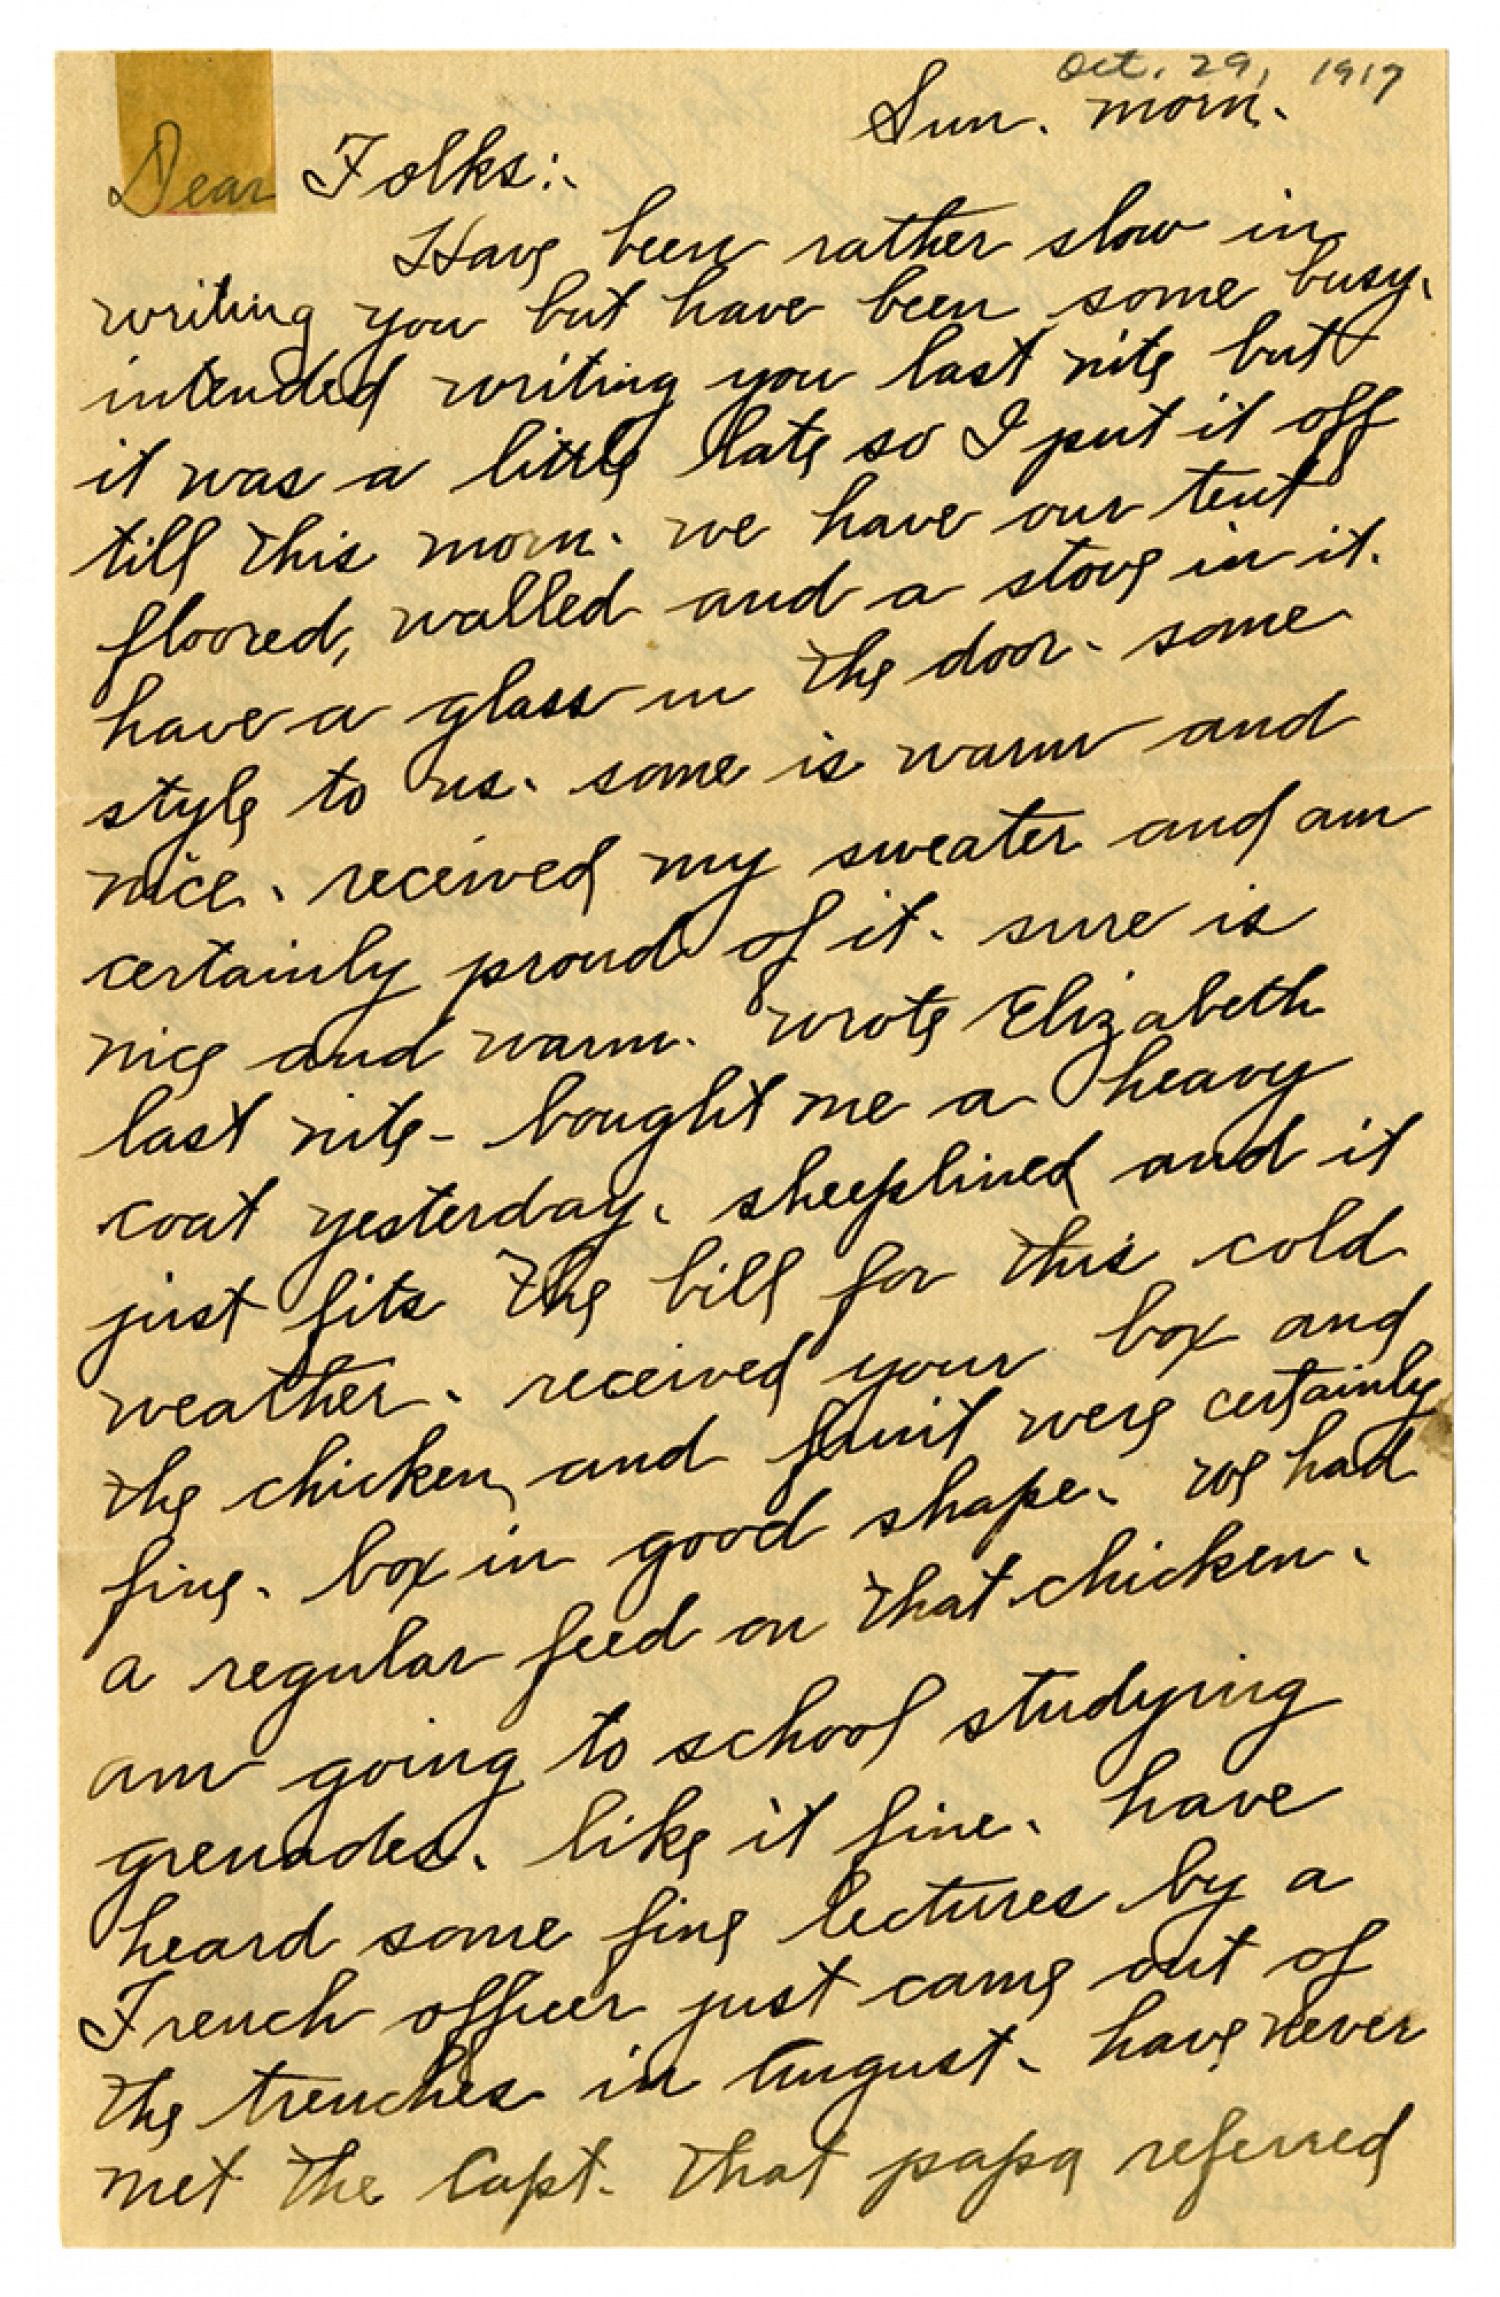 Oct. 29, 1917
Sun. morn.
Dear Folks:-
Have been rather slow in
writing you but have been some busy.
intended writing you last nite but
it was a little late so I put it off
till this morn. we have our tent
floored, walled and a stove in it.
have a glass in the door. some
style to us. some is warm and
nice. received my sweater and am
certainly proud of it. sure is
nice and warm. wrote Elizabeth
last nite - bought me a heavy
coat yesterday. sheeplined and it
just fits the bill for this cold
weather. received your box and
the chicken and fruit were certainly
fine. box in good shape. we had
a regular feed on that chicken.
am going to school studying
grenades. like it fine. have
heard some fine lectures by a
French officer just came out of
the trenches in August. have never
met the Capt. that papa referred